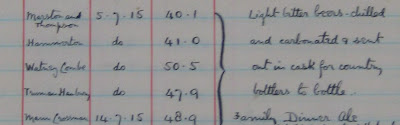 Marston and Thompson 5.7.15 40.1 Light bitter beers chilled
Hammerton do 41.0 and carbonated & sent
Watney Combe do 50.5 out in cask for country
Truman Hanbury do 47.9 bottlers to bottle.
Mann Crossman 14.7.15 48.9 Family Dinner Ale